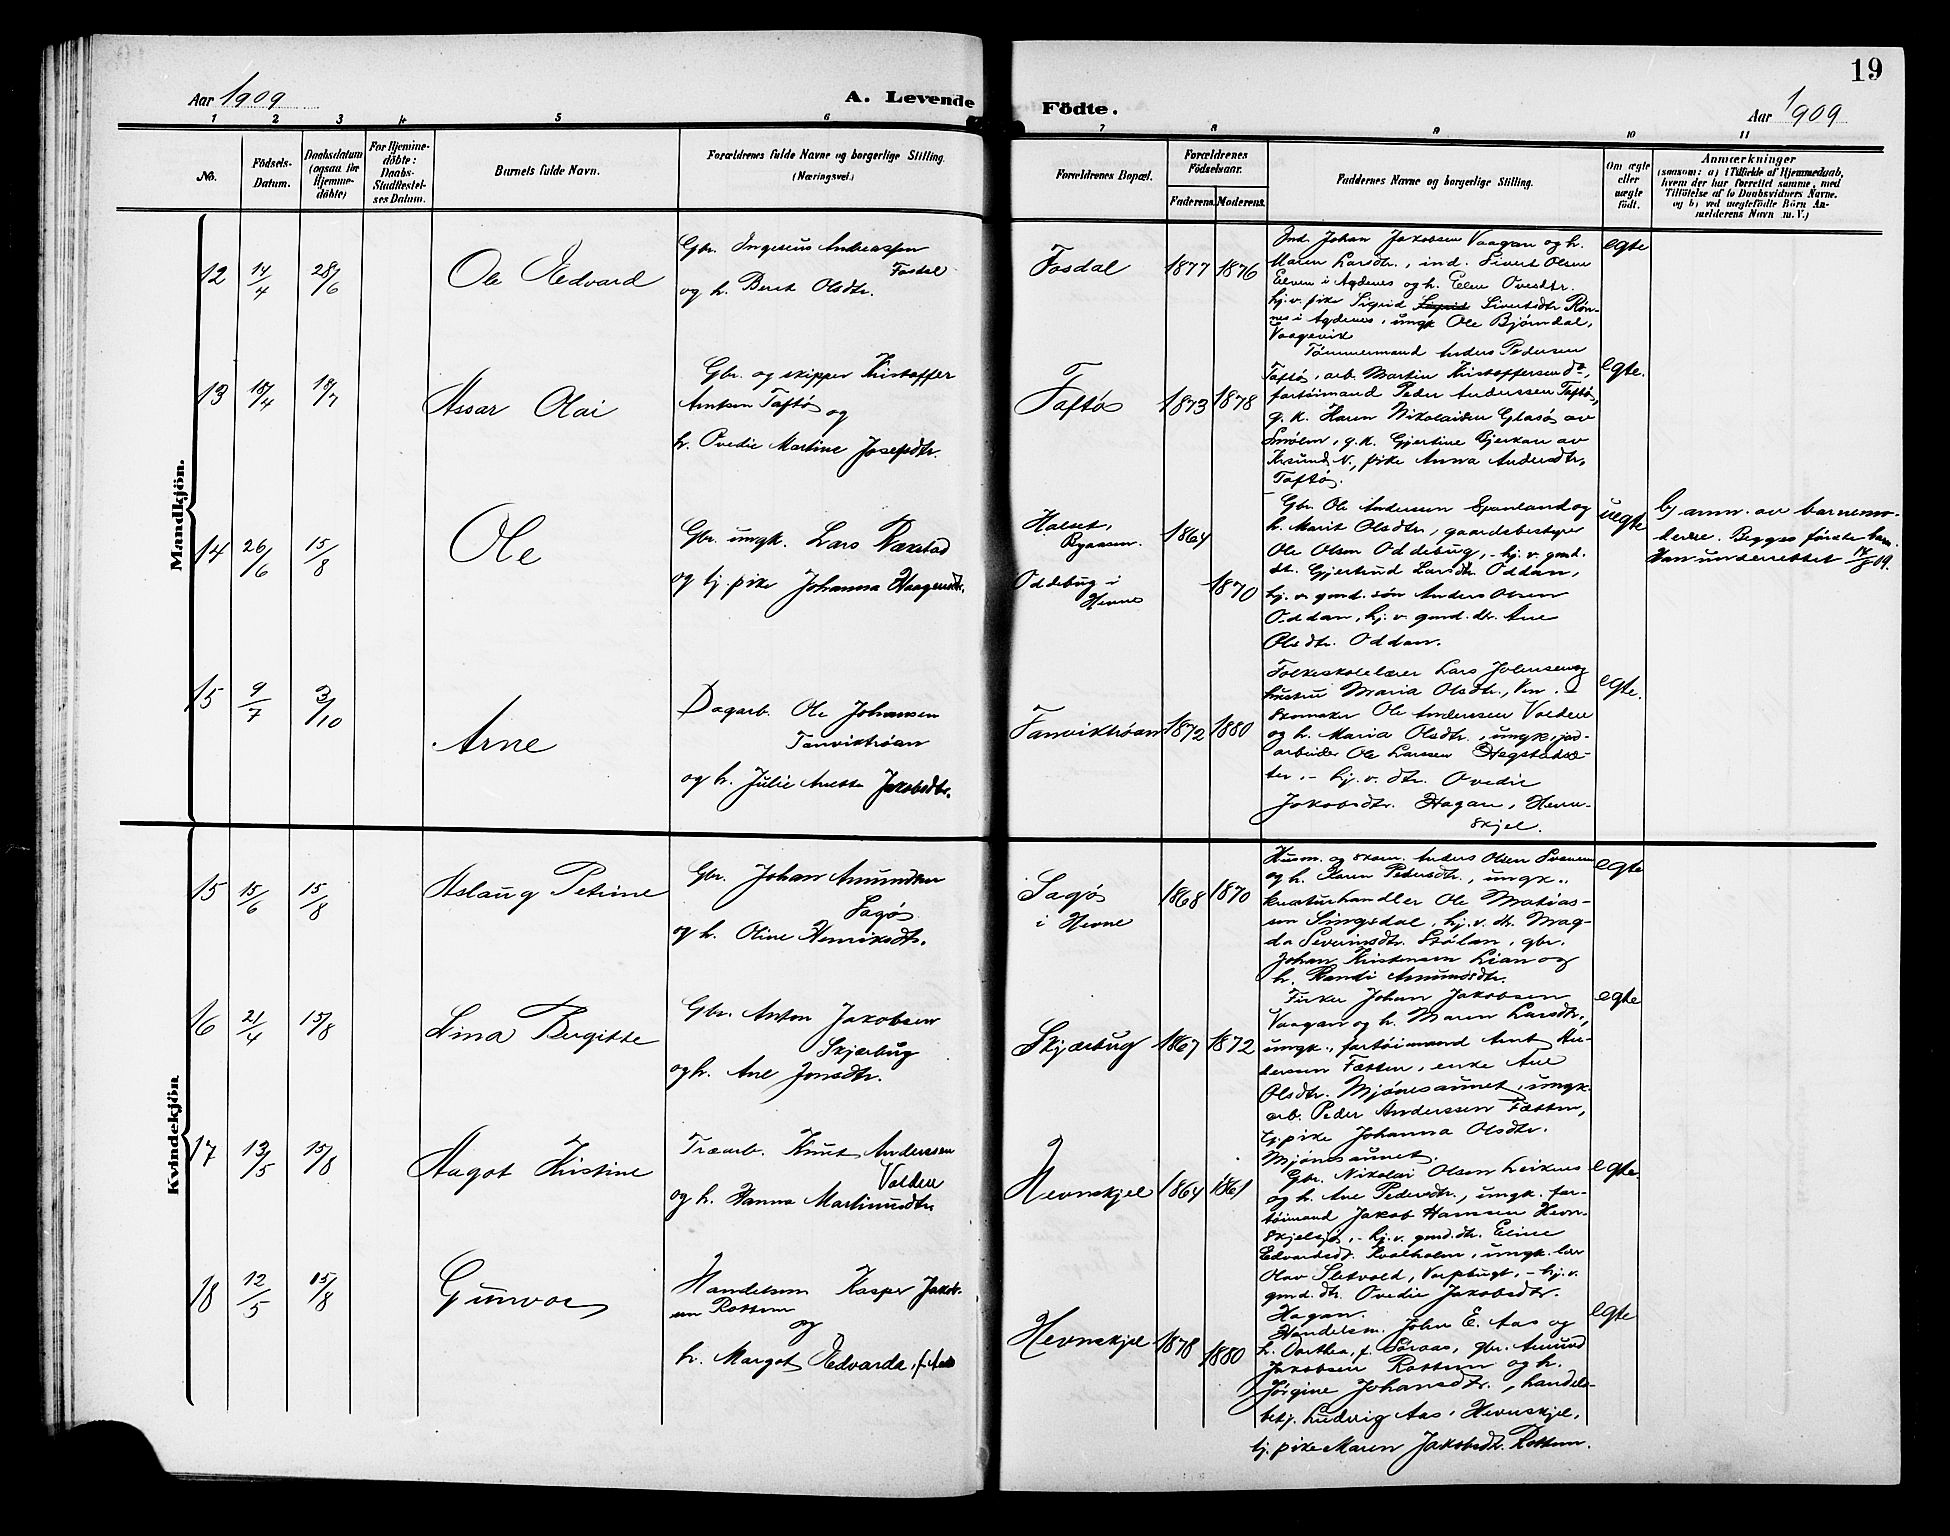 19
Aar 1909
A. Levende Födte.
Aar 1909
1 2 3 4 5 6 7 8 9 10 11
No.
Födsels-
Datum.
Daabsdatum
(ogsaa for
Hjemme-
döbte)
For Hjemme-
döbte:
Daabs-
Stadfæstel-
ses Datum.
Barnets fulde Navn.
Forældrenes fulde Navne og borgerlige Stilling.
(Næringsvei.)
Forældrenes Bopæl.
Forældrenes
Födselsaar.
Faderens. Moderens.
Faddernes Navne og borgerlige Stilling.
Om ægte
eller
uægte
födt.
Anmærkninger
(saasom: a) i Tilfælde af Hjemmedaab,
hvem der har forrettet samme, med
Tilföielse af to Daabsvidners Navne.
og b) ved uægtefödte Börn An-
melderens Navn m. V.)
Mandkjön.
12
14/4
28/6
Ole Edvard
Gbr. Ingeseus Andreassen
Fosdal
og h. Beret Olsdtr.
Fosdal
1877 1876
Ind. Johan Jakobsen Vaagan og h.
Maren Larsdtr., ind. Sivert Olsen
Elven i Agdenes og h. Elen Ovesdtr.
hj. v. pike Sigrid Sivertsdtr Røn-
nes i Agdenes, ungk Ole Bjørndal,
Vaagevik
egte
13
18/4
18/7
Assar Olai
Gbr. og skipper Kristoffer
Arntsen Taftø og
h. Ovedie Martine Josefsdtr.
Taftø
1873 1878
Tømmermand Anders Pedersen
Taftø, arb. Martin Kristoffersen do,
fartøimand Peder Anderssen Taftø,
g. k. Karen Nikolaisen Glasø av
Smølen, g. k. Gjertine Bjerkan av
Krsund N., pike Anna Andersdtr,
Taftø.
egte.
14
26/6
15/8
Ole
Gbr. ungk. Lars Næxstad
og bj. pike Johanna Haagensdtr.
Halset,
Ryaasen.
Oddebug i
Hevne
1864
1870
Gbr. Ole Andersen Spanland og
h. Marit Olsdtr, gaardsbestyrer
Ole Olsen Oddebug, hj. v. gmd.
dt. Gjertrud Larsdtr. Oddan,
hj. v. gmd. søn Anders Olsen
Oddan, hj. v. gmd. dtr. Ane
Olsdtr. Oddan.
uegte
b) anm. av barnemo-
deren. Begges første barn.
Han underrettet 17/8 09.
15
9/7
3/10
Arne
Dagarb. Ole Johansen
Tanviktrøan
og h. Julie Anetta Jakobsdtr.
Tanviktrøan
1872 1880
Folkeskolelærer Lars Johnsen og
hustru Maria Olsdtr., Vn.
Skomaker Ole Anderssen Volden
og h. Maria Olsdtr., ungk., jord-
arbeider Ole Larssen Hegstadsæ-
ter, hj. v. dtr. Ovedie
Jakobsdtr. Hagan, Hevn-
skjel.
egte.
Kvindekjön
15
15/6
15/8
Aslaug Petrine
Gbr. Johan Amundsen
Sagø
og h. Oline Henriksdtr.
Sagø
i Hevne
1868 1870
Husm. og skom. Anders Olsen Svanem
og h. Karen Pedersdtr., ungk.,
kreaturhandler Ole Matias-
sen Singsdal, hj. v. dt. Mag-
da Severinsdtr. Stølan, gbr.
Johan Kristensen Lian og
h. Randi Amundsdtr.
egte
16
21/4
15/8
Lina Bergitte
Gbr. Anton Jakobsen
Skjærbug
og h. Ane Jonsdtr.
Skjærbug
1867 1872
Fisker Johan Jakobsen
Vaagan og h. Maren Larsdtr.,
ungk., fartøimand Arnt An-
derssen Fætten, enke Ane
Olsdtr. Mjønesaunet, ungk.
arb. Peder Anderssen Fætten,
bj. pike Johanna Olsdtr.
Mjønesaunet.
egte
17
13/5
15/8
Aagot Kristine
Træarb. Knut Anderssen
Volden
og h. Hanna Martinusdtr
Hevnskjel
1864 1861
Gbr. Nikolai Olsen Leiknes
og h. Ane Pedersdtr., ungk. far-
tøimand Jakob Hanssen Hevn-
skjelsjø, hj. v. gmd. dtr. Eline
Edvardsdt. Kvalholm, ungk. lær
Olav Sletvold, Varpbugt, hj. v.
gmd. dt. Ovedie Jakobsdtr.
Hagan.
egte.
18
12/5
15/8
Gunvor
Handelsm Kasper Jakob-
sen Rottem
og
h. Margot Edvarda, f. Aas
Hevnskjel
1878 1880
Handelsm. John E. Aas og
h. Dorthea, f. Søraas, gbr. Amund
Jakobsen Rottem og h.
Jørgine Johansdtr., handels-
betj. Ludvig Aas, Hevnskjel,
bj. pike Maren Jakobsdtr. Rottem.
egte